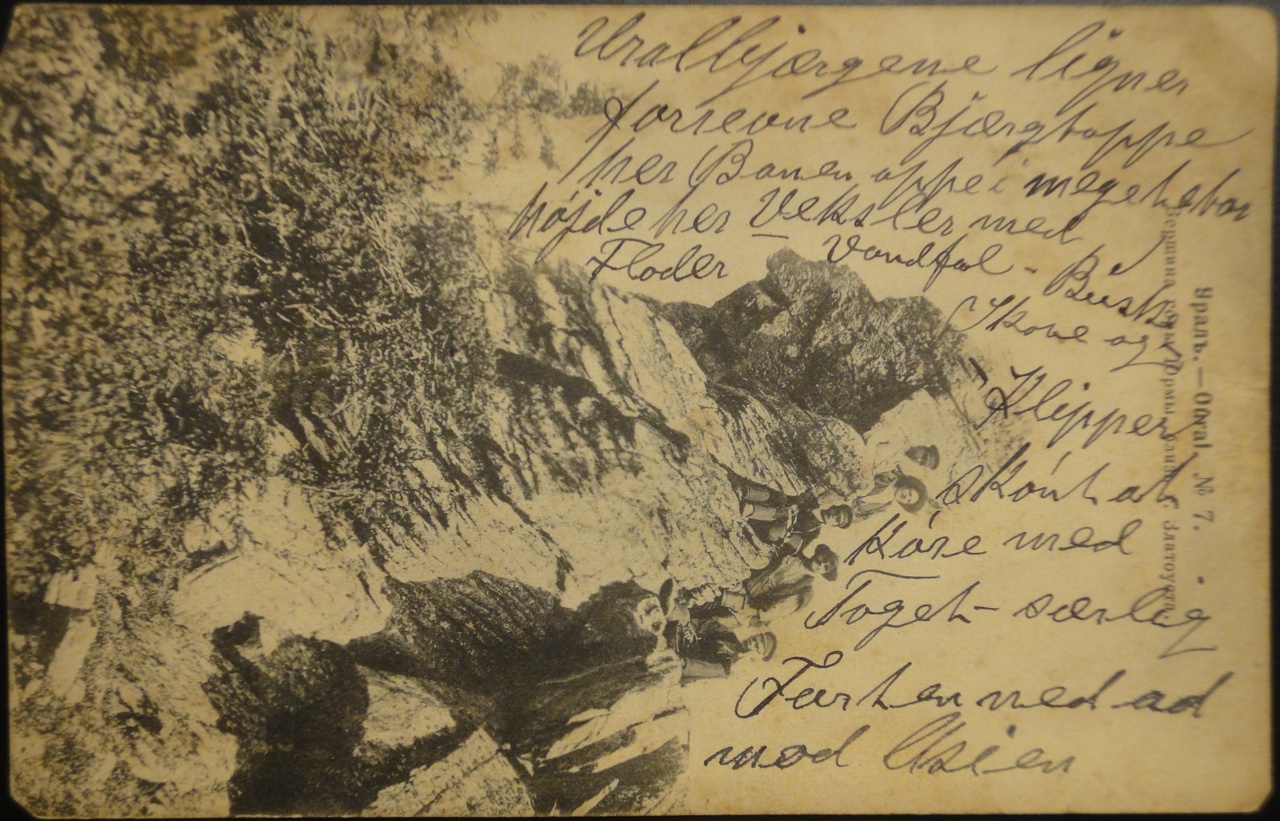 Uralbjærgene ligner
forrevne Bjærgtoppe
her Banen oppe i meget stor
højde her Veksler med
Floder Vandfal - Busk
Skove og
Klipper
skönt at
Køre med
Toget - særlig
Farten ned ad
mod Asien
Уралъ. — Ural. № 7.
Вершина горы близъ Златоуста.